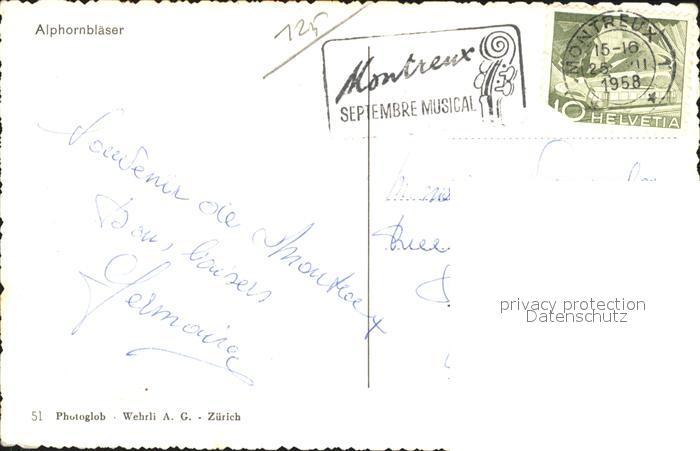 Alphornbläser
125
Montreux
SEPTEMBRE MUSICAL
MONTREUX 1
15-16
25. VII
1958
10 HELVETIA
Souvenir de Montreux
Bons baisers
Germaine
privacy protection
Datenschutz
51 Photoglob - Wehrli A. G. - Zürich